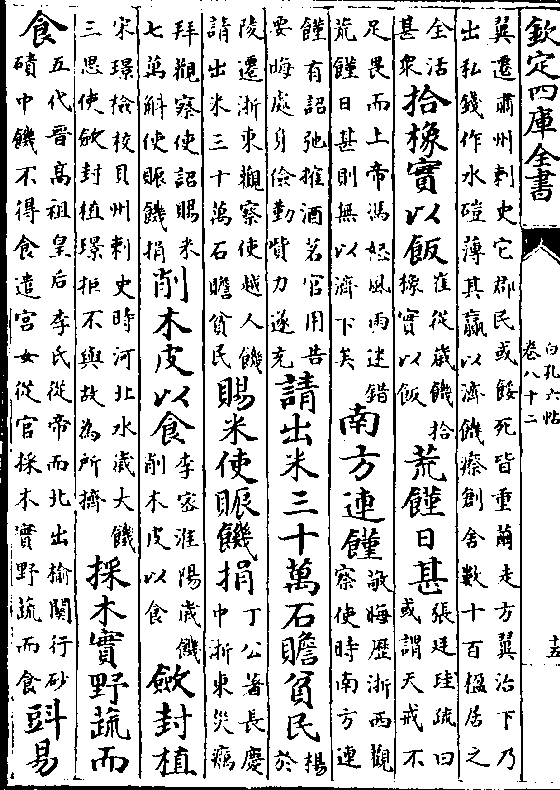 欽定四庫全書
白孔六帖
卷八十二
十五
翼遷肅州刺史它郡民或餒死皆重繭走方翼治下乃
出私錢作水磑薄其贏以濟饑瘵創舍數十百楹居之
全活
甚衆
拾橡實以飯
崔從歲饑拾
橡實以飯
荒饉日甚
張廷珪疏曰
或謂天戒不
足畏而上帝馮怒風雨迷錯
荒饉日甚則無以濟下矣
南方連饉
敬晦歷浙西觀
察使時南方連
饉有詔弛搉酒茗官用告
要晦處身儉勤貲力遂充
請出米三十萬石贍貧民
楊
於
陵遷浙東觀察使越人饑
請出米三十萬石贍貧民
賜米使賑饑捐
丁公著長慶
中浙東災癘
拜觀察使詔賜米
七萬斛使賑饑捐
削木皮以食
李密淮陽歲饑
削木皮以食
斂封植
宋璟檢校貝州刺史時河北水歲大饑
三思使斂封植璟拒不與故為所擠
採木實野蔬而
食
五代晉高祖皇后李氏從帝而北出榆關行砂
磧中饑不得食遣宮女從官採木實野蔬而食
㪷易